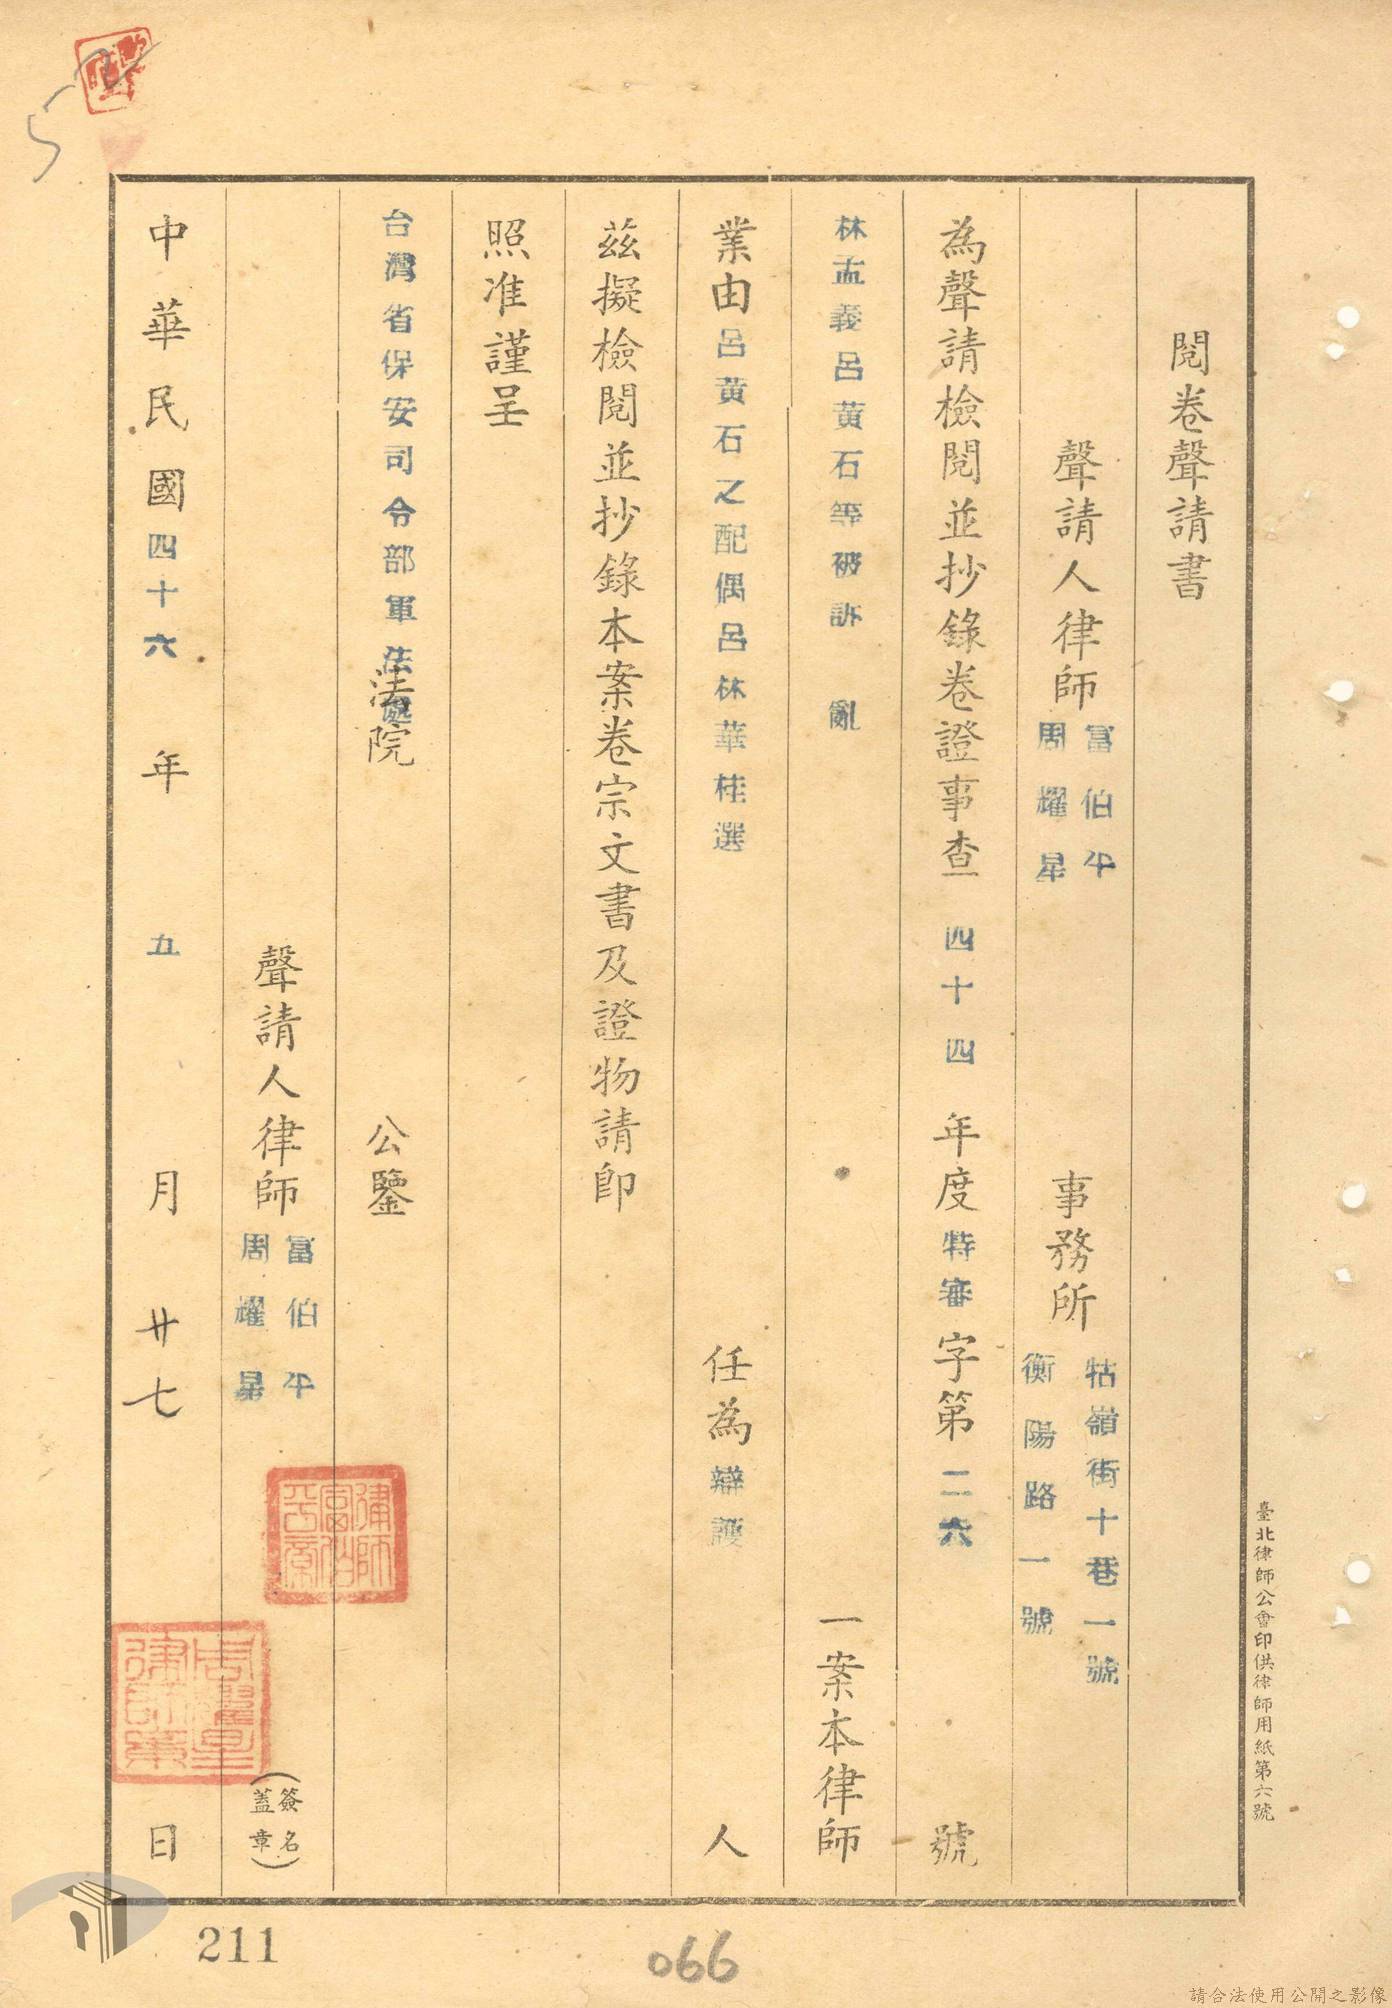 閱卷聲請書
聲請人律師 富伯平 周耀星 事務所 牯嶺街十巷一號 衡陽路一號
為聲請檢閱並抄錄卷證事查 四十四 年度 特審 字第 二六 號
林孟義呂黃石等被訴 亂 一案本律師
業由 呂黃石之配偶呂林華桂選 任為 辯護 人
茲擬檢閱並抄錄本案卷宗文書及證物請卽
照准謹呈
台灣省保安司令部軍法處 法院 公鑒
聲請人律師 富伯平 周耀星 (簽名蓋章)
中華民國 四十六 年 五 月 廿七 日
律師富伯平章
周耀星律師章
臺北律師公會印供律師用紙第六號
211
066
請合法使用公開之影像